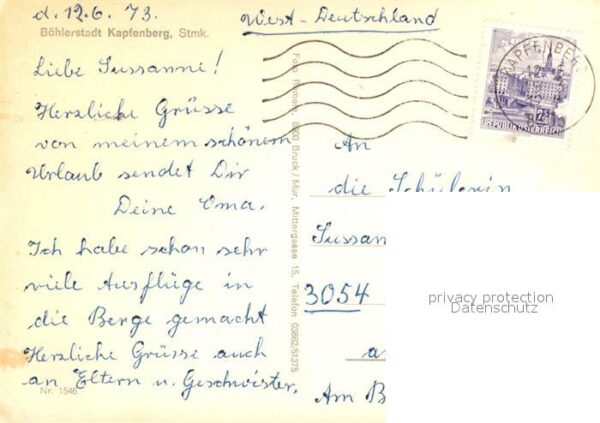 d. 12.6.73.
West-Deutschland
Böhlerstadt Kapfenberg, Stmk.
Liebe Sussanne!
Herzliche Grüsse
von meinem schönem
Urlaub sendet Dir
Deine Oma.
Ich habe schon sehr
viele Ausflüge in
die Berge gemacht
Herzliche Grüsse auch
an Eltern u. Geschwister.
Nr. 1546
8600 Bruck/Mur, Mittergasse 15, Telefon 03862/51375
KAPFENBERG
REPUBLIK ÖSTERREICH
An
die Schülerin
Sussan
3054
a
Am B
privacy protection
Datenschutz